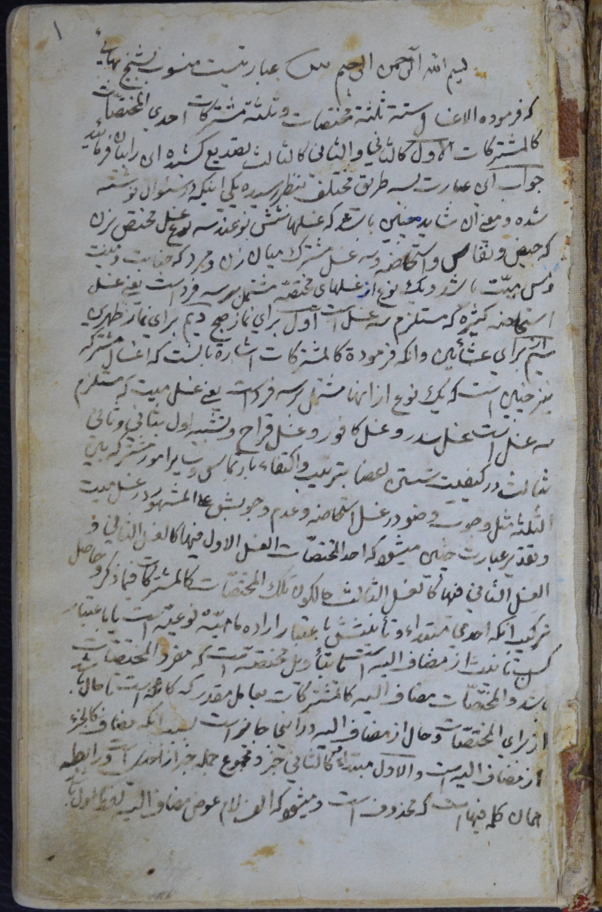 ۱
بسم الله الرحمن الرحیم عبارتیست منسوب بشیخ بهائی
که فرموده الاغسال ستة ثلثة مختصات وثلثة مشترکات احدی المختصات
کالمشترکات الاول کالثانی والثانی کالثالث تصدیع کشیده این را بیان فرمایند
جواب این عبارت بسه طریق مختلف بنظر رسیده یکی اینکه در سئوال نوشته
شده و معنی آن شاید چنین باشد که غسلها شش نوعند سه نوع غسل مختص بزن
که حیض و نفاس و استحاضه و سه غسل مشترک میان زن و مرد که جنابت و میت
و مس میت باشد و یک نوع از غسلهای مختصه مشتمل بر سه فرد است یعنی غسل
استحاضه کثیره که مستلزم سه غسل است اول برای نماز صبح دیم برای نماز ظهرین
سیم برای عشائین و آنکه فرموده کالمشترکات اشاره بآنست که اغسال مشترکه
نیز چنین است که یک نوع از آنها مشتمل بر سه فرد است یعنی غسل میت که مستلزم
سه غسل است غسل سدر و غسل کافور و غسل قراح و تشبیه اول بثانی و ثانی
بثالث در کیفیت شستن اعضا بترتیب و اکتفاء بارتماس و سایر امور مشترکه بین
الثلثة مثل وجوب وضو در غسل استحاضه و عدم وجوبش علی المشهور در غسل میت
و تقدیر عبارت چنین میشود که احد المختصات الغسل الاول فیها کالغسل الثانی و
الغسل الثانی فیها کالغسل الثالث حالکون تلک المختصات کالمشترکات فیما ذکر و حاصل
ترکیب آنکه احدی مبتداء و تأنیثش باعتبار اراده ماهیة نوعیه است یا باعتبار
کسب تأنیث از مضاف الیه است بتأویل مختصه است که مفرد المختصات
باشد والمختصات مضاف الیه کالمشترکات بعامل مقدر که کائنة است تا حال باشد
از برای المختصات و حال از مضاف الیه در اینجا جایز است بسبب آنکه مضاف کالجزء
از مضاف الیه است والاول مبتداء کالثانی خبر و مجموع جمله خبر از احدی است و رابطه
همان کلمه فیها است که محذوف است و میشود که الف لام عوض مضاف الیه